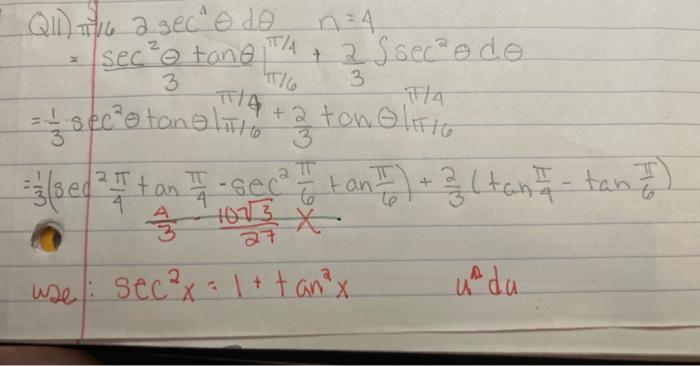 Q11) ∫π/6 2 sec⁴ θ dθ n=4
= sec²θ tanθ/3 |π/4 π/6 + 2/3 ∫sec²θ dθ
= 1/3 · sec²θ tanθ |π/4 π/6 + 2/3 tanθ |π/4 π/6
= 1/3 (sec² π/4 tan π/4 - sec² π/6 tan π/6) + 2/3 (tan π/4 - tan π/6)
4/3 - 10√3/27 X
use: sec²x = 1 + tan²x uⁿ du